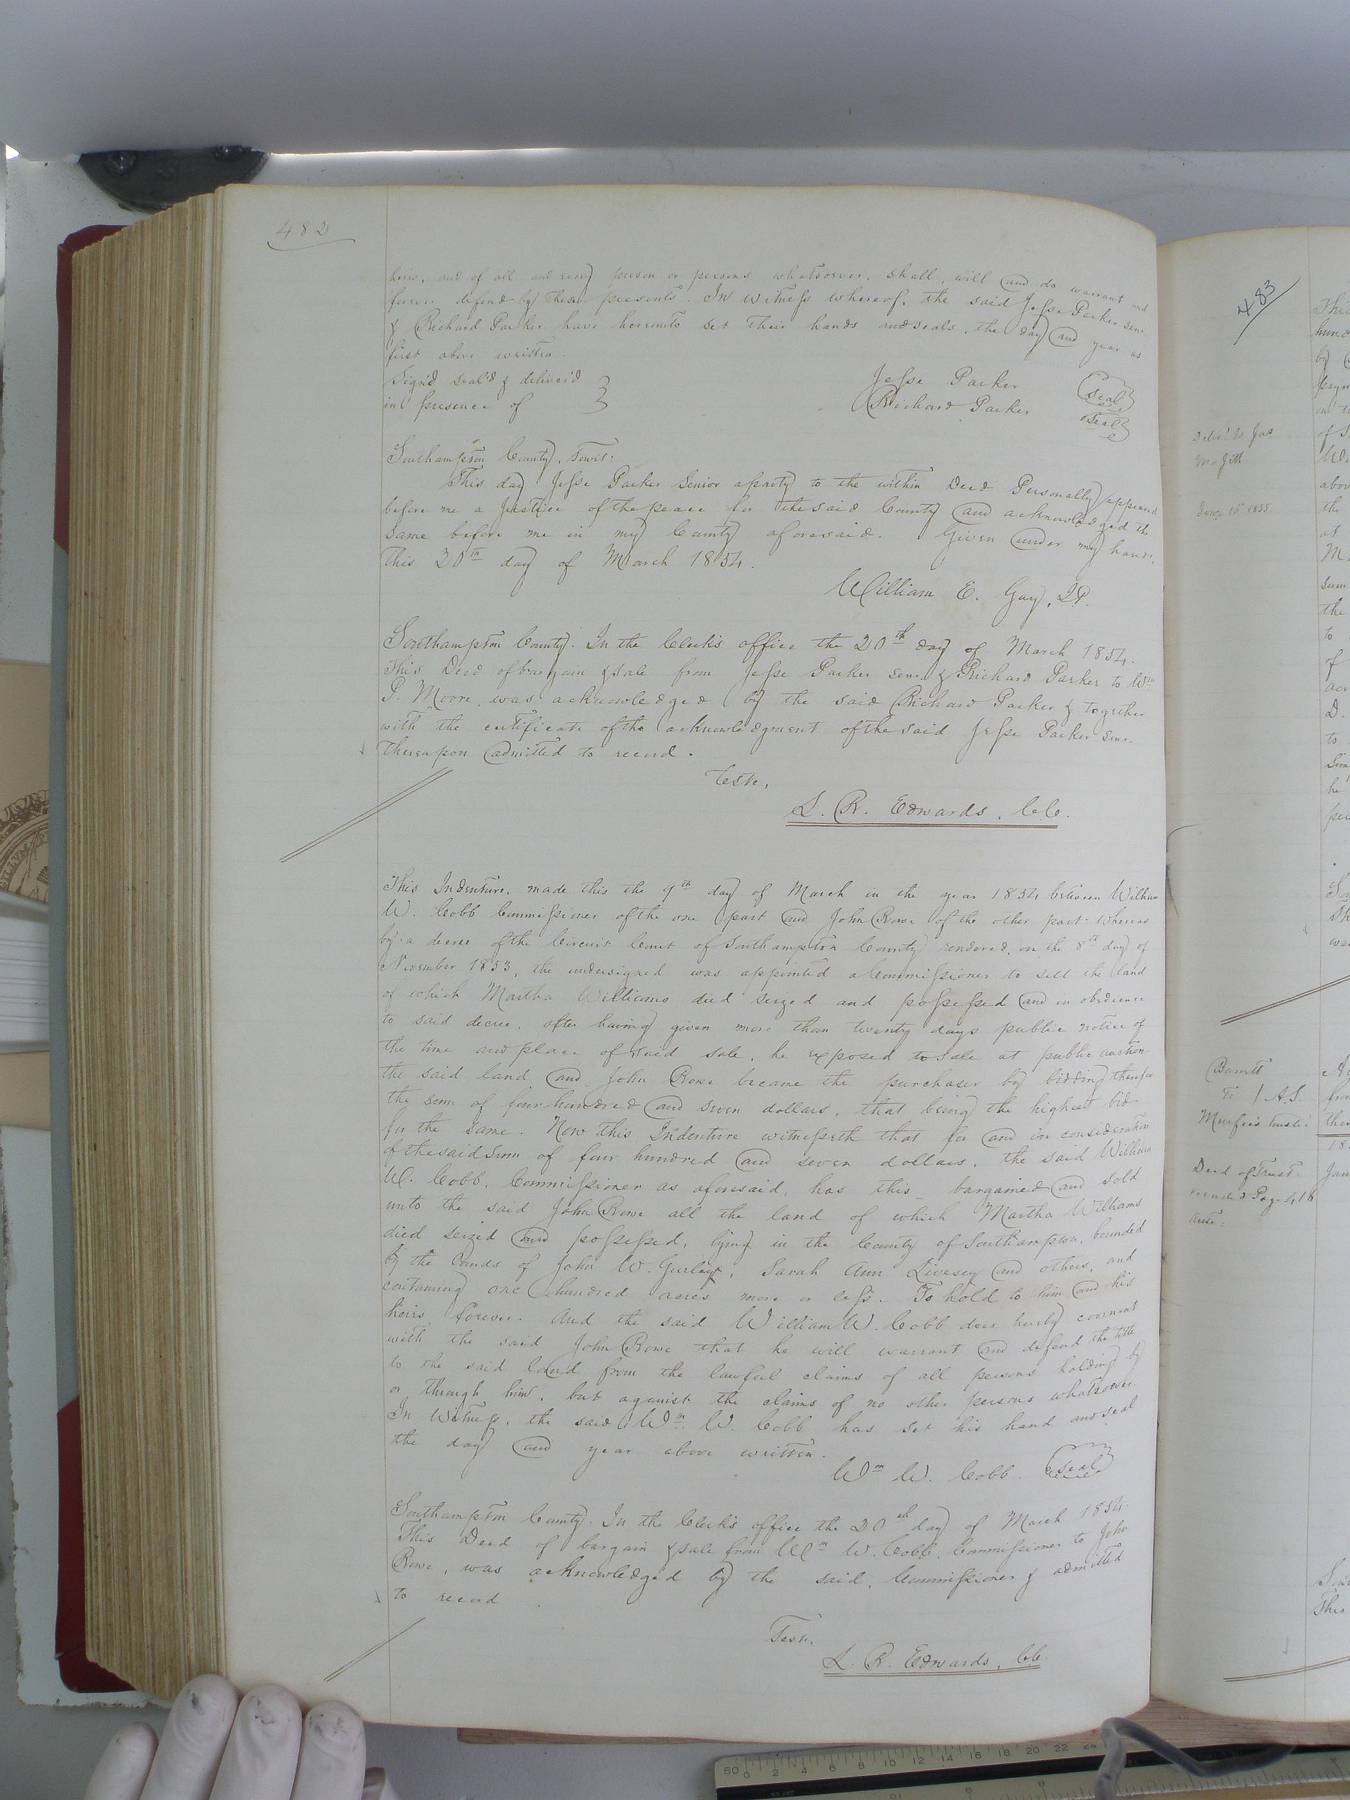 482
heirs, and of all and every person or persons whatsoever, shall, will and do warrant and
forever defend by these presents. In witness whereof, the said Jesse Parker senr.
& Richard Parker have hereunto set their hands and seals, the day and year as
first above written.
Sign'd seal'd & deliver'd
in presence of
Jesse Parker seal
Richard Parker seal
Southampton County, Towit:
This day Jesse Parker Senior a party to the within Deed Personally appeared
before me a Justice of the peace for the said County and acknowledged the
same before me in my County aforesaid. Given under my hand,
this 20th day of March 1854.
William E. Guy, J.P.
Southampton County. In the Clerk's office the 20th day of March 1854.
This Deed of bargain & sale from Jesse Parker senr. & Richard Parker to Wm
P. Moore, was acknowledged by the said Richard Parker & together
with the certificate of the acknowledgment of the said Jesse Parker senr.
thereupon admitted to record.
Teste,
L. R. Edwards, C.C.
This Indenture, made this the 9th day of March in the year 1854 between William
W. Cobb Commissioner of the one part and John Rowe of the other part: whereas
by a decree of the Circuit Court of Southampton County rendered, on the 8th day of
November 1853, the undersigned was appointed a Commissioner to sell the land
of which Martha Williams died seized and possessed and in obedience
to said decree, after having given more than twenty days public notice of
the time and place of said sale, he exposed to sale at public auction
the said land, and John Rowe became the purchaser by bidding therefor
the sum of four hundred and seven dollars, that being the highest bid
for the same. Now this Indenture witnesseth that for and in consideration
of the said sum of four hundred and seven dollars, the said William
W. Cobb, Commissioner as aforesaid, has this bargained and sold
unto the said John Rowe all the land of which Martha Williams
died seized and possessed, lying in the County of Southampton, bounded
by the lands of John W. Gurley, Sarah Ann Livesey and others, and
containing one hundred acres more or less. To hold to him and his
heirs forever. And the said William W. Cobb does hereby covenant
with the said John Rowe that he will warrant and defend the title
to the said land from the lawful claims of all persons holding by
or through him, but against the claims of no other persons whatsoever.
In Witness, the said Wm W. Cobb has set his hand and seal
the day and year above written.
Wm W. Cobb. seal
Southampton County. In the Clerk's office the 20th day of March 1854.
This Deed of bargain & sale from Wm W. Cobb, Commissioner to John
Rowe, was acknowledged by the said, Commissioner & admitted
to record.
Teste,
L. R. Edwards, C.C.
483
Jany 15 1855
Barrett
To
Deed of Trust
recorded Page 418
ante:
50 0 2 4 6 8 10 12 14 16 18 20 22